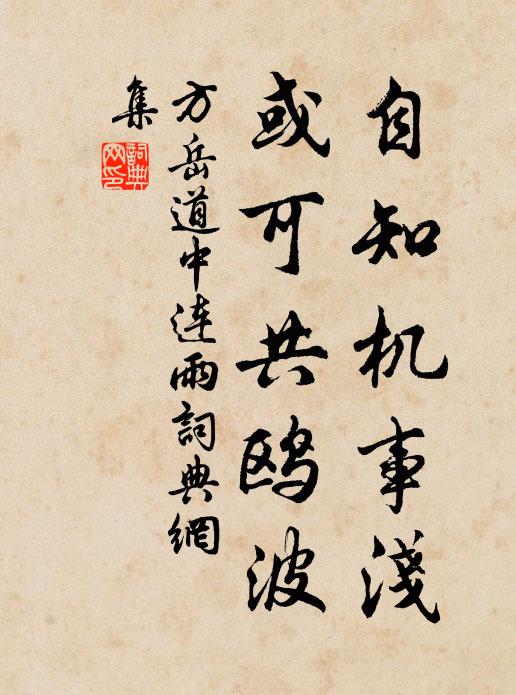 自知机事浅
或可共鸥波
方岳道中连雨詞典網
集
詞典網印